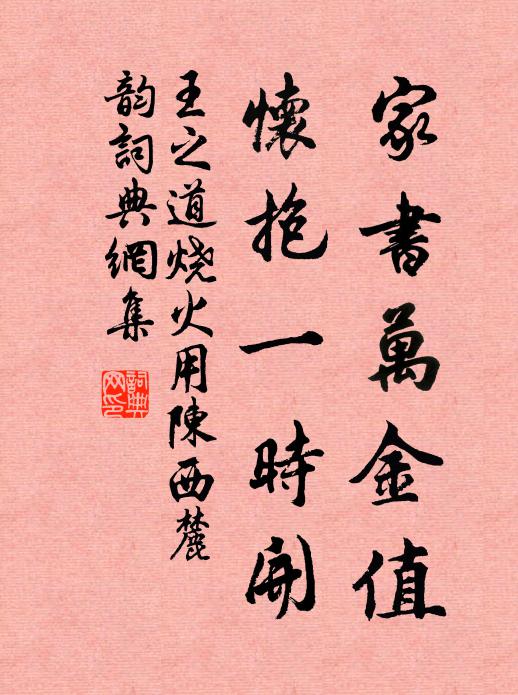 家書萬金值
懷抱一時開
王之道烧火用陳西麓
韵詞典網集
詞典網印